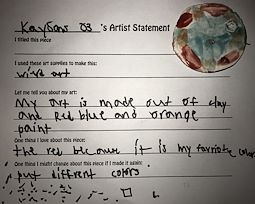 Kaydons 03 's Artist Statement
I titled this piece
I used these art supplies to make this:
wire art
Let me tell you about my art:
My art is made out of clay
and Red blue and orange
paint
One thing I love about this piece:
the red because it is my favriote color
One thing I might change about this piece if I made it again:
put diffrent colors